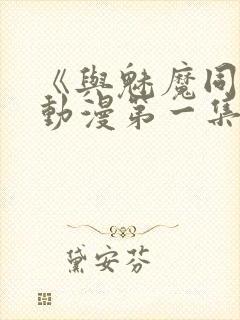 《與魅魔同
動漫第一集
黛安芬